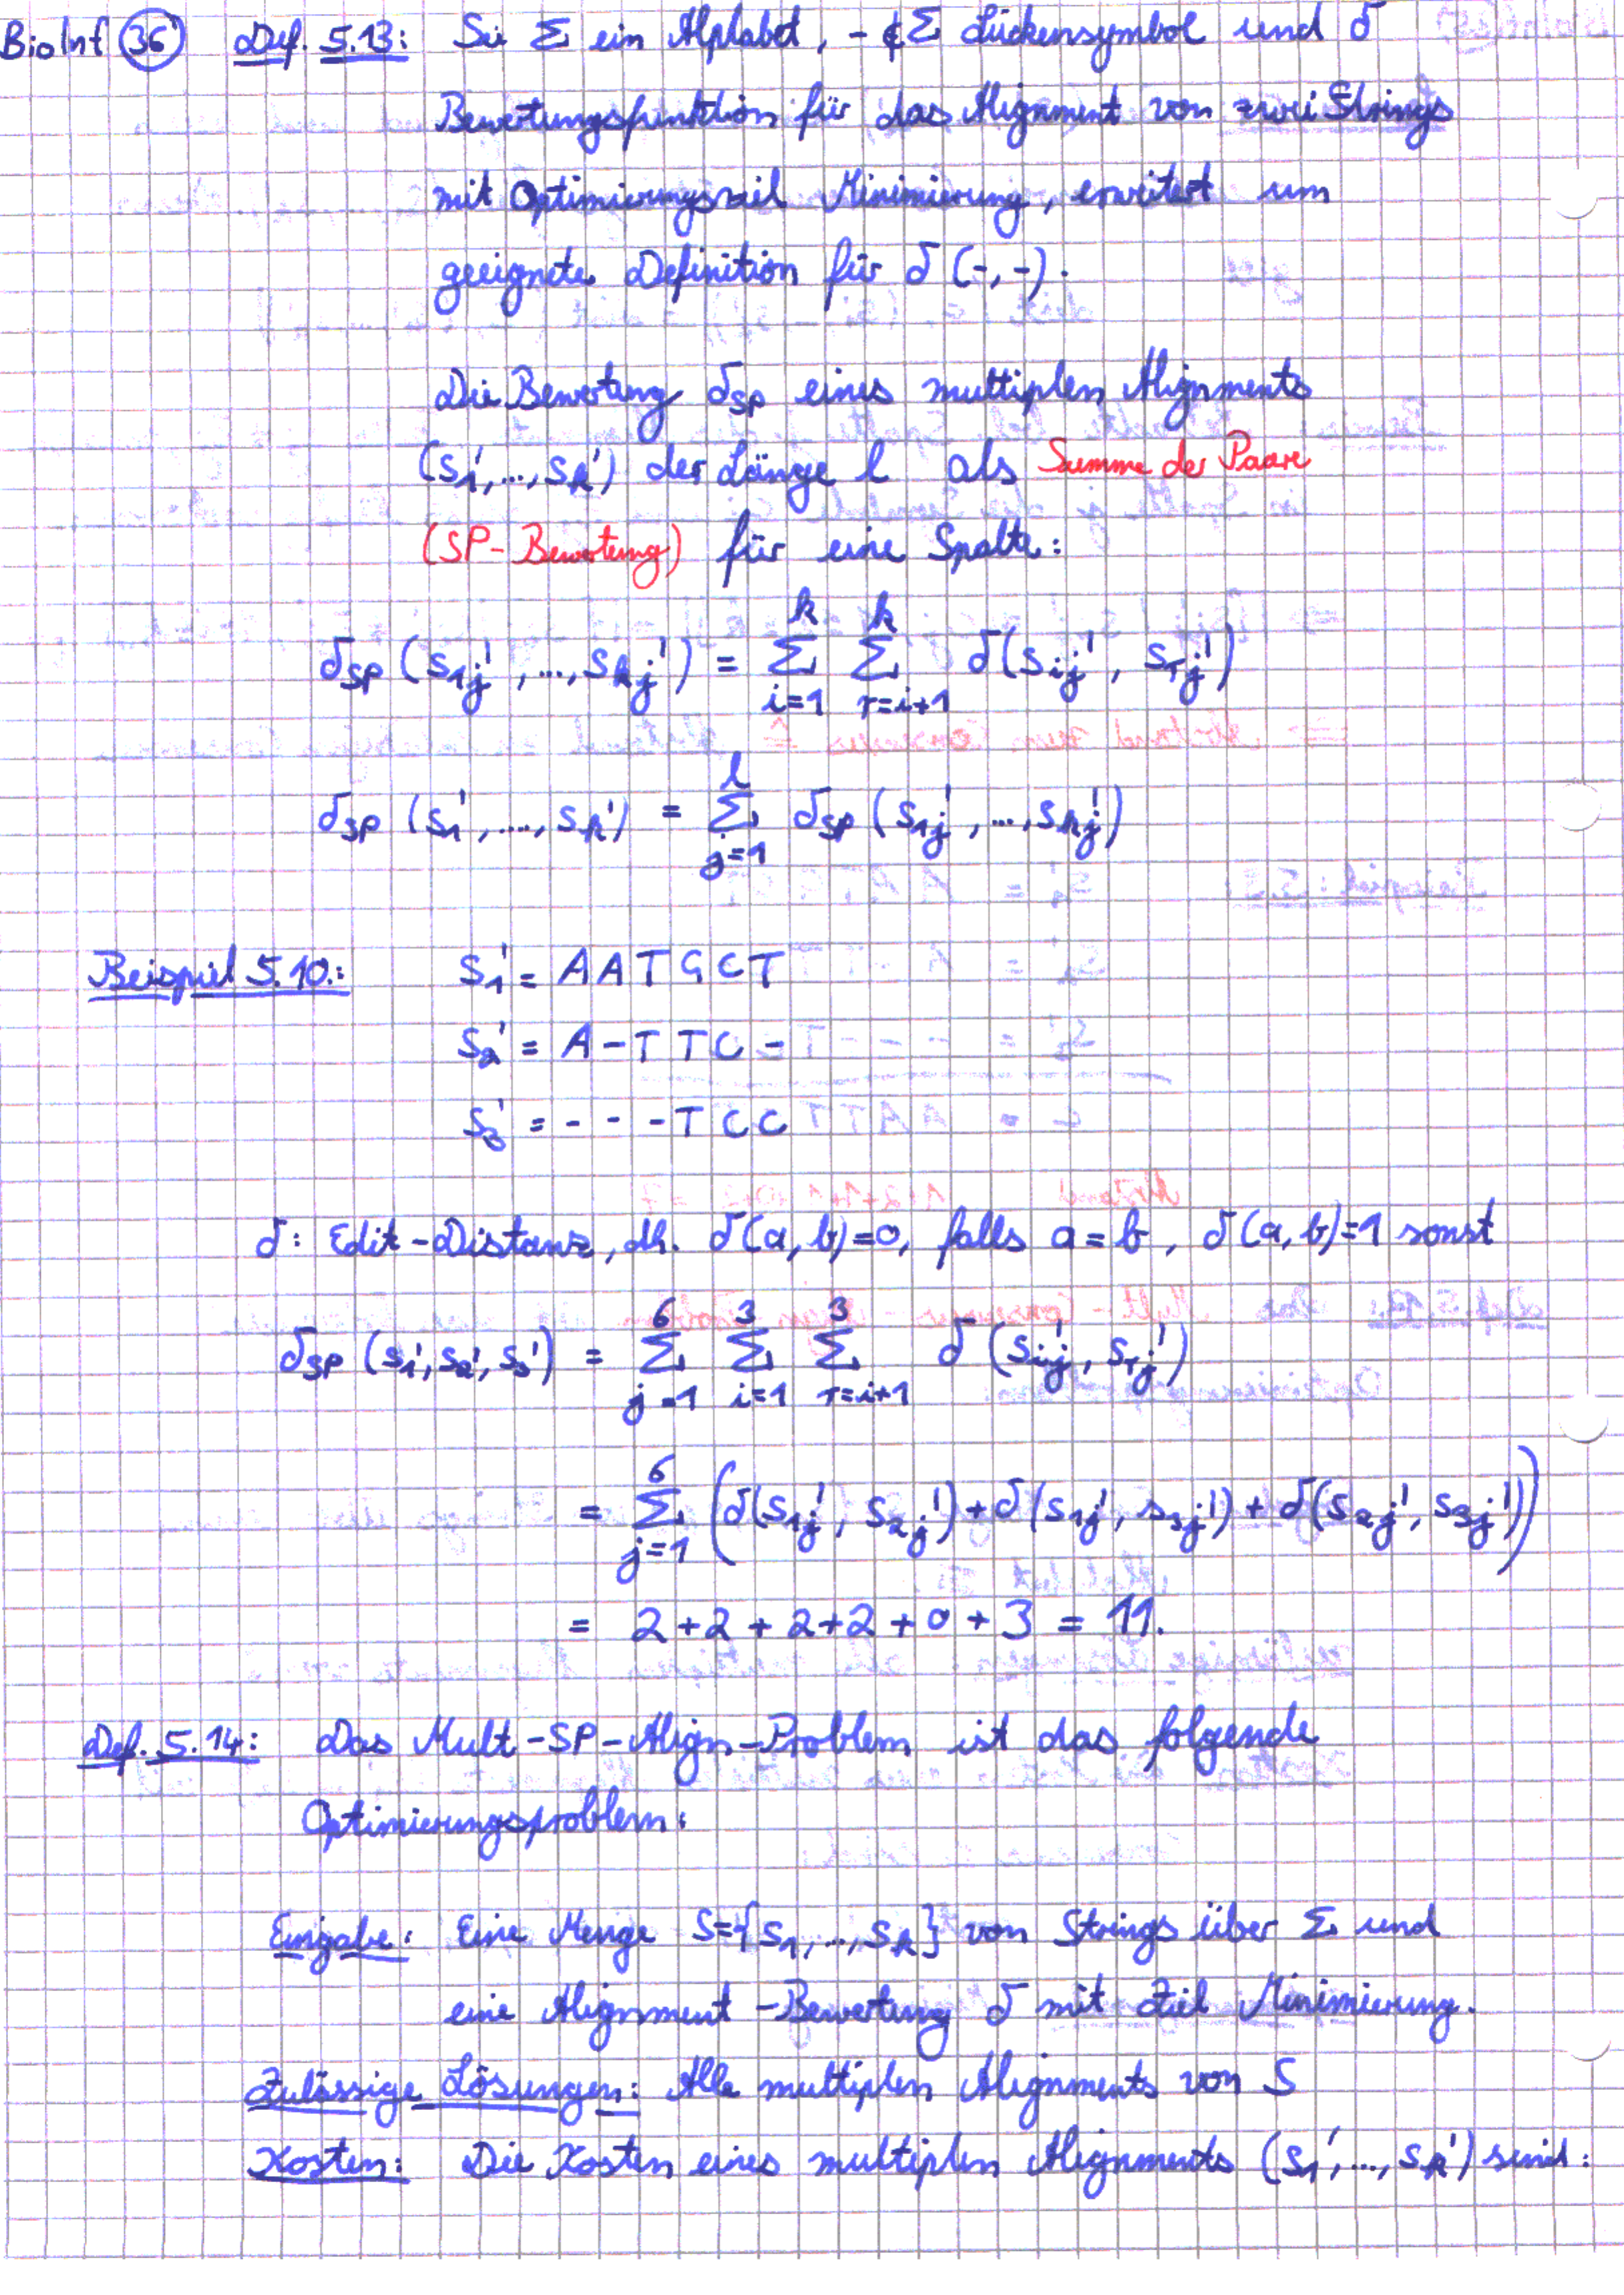 BioInf 36 Def. 5.13: Sei Σ ein Alphabet, - ∉ Σ Lückensymbol und δ
Bewertungsfunktion für das Alignment von zwei Strings
mit Optimierungsziel Minimierung, erweitert um
geeignete Definition für δ(-,-).
Die Bewertung δ_SP eines multiplen Alignments
(s₁',...,s_k') der Länge l als Summe der Paare
(SP-Bewertung) für eine Spalte:
δ_SP (s_1j',...,s_kj') = Σ_{i=1}^{k} Σ_{r=i+1}^{k} δ(s_ij', s_rj')
δ_SP (s₁',....,s_k') = Σ_{j=1}^{l} δ_SP (s_1j',...,s_kj')
Beispiel 5.10.: s₁' = A A T G C T
s₂' = A - T T C -
s₃' = - - - T C C
δ: Edit-Distanz, dh. δ(a,b)=0, falls a=b, δ(a,b)=1 sonst
δ_SP (s₁',s₂',s₃') = Σ_{j=1}^{6} Σ_{i=1}^{3} Σ_{r=i+1}^{3} δ(s_ij', s_rj')
= Σ_{j=1}^{6} (δ(s_1j', s_2j') + δ(s_1j', s_3j') + δ(s_2j', s_3j'))
= 2+2+2+2+0+3 = 11.
Def. 5.14: Das Mult-SP-Align-Problem ist das folgende
Optimierungsproblem:
Eingabe: Eine Menge S={s₁,..,s_k} von Strings über Σ und
eine Alignment-Bewertung δ mit Ziel Minimierung.
Zulässige Lösungen: Alle multiplen Alignments von S
Kosten: Die Kosten eines multiplen Alignments (s₁',...,s_k') sind: